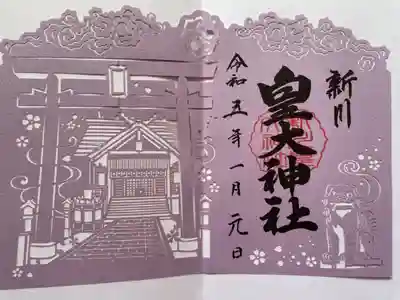 新川
皇大神社
令和五年一月元日